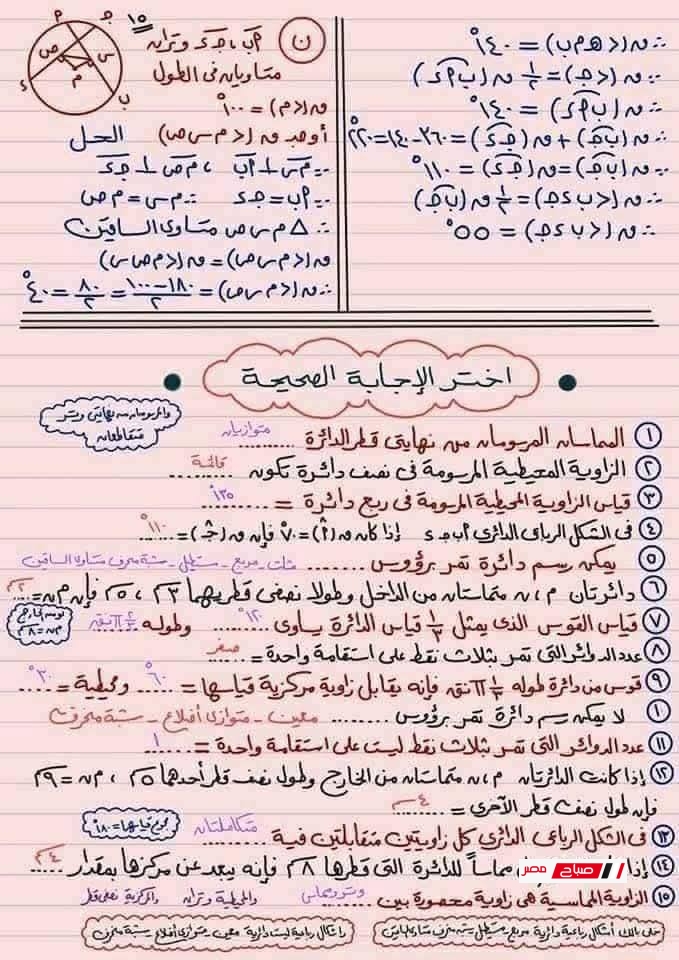 ∴ ق(< هـ م ب) = ١٤٠°
∴ ق(< جـ) = ١/٢ ق(ب أ د)
∴ ق(ب أ د) = ١٤٠°
∴ ق(ب جـ) + ق(جـ د) = ٣٦٠ - ١٤٠ = ٢٢٠°
∵ ق(ب جـ) = ق(جـ د) = ١١٠°
∵ ق(< ب د جـ) = ١/٢ ق(ب جـ)
∴ ق(< ب د جـ) = ٥٥°
١٥
ن
أب ، جـ د وتران
متساويان فى الطول
ق(< م) = ١٠٠°
أوجد ق(< م س ص)
الحل
∵ م س ⊥ أب ، م ص ⊥ جـ د
∵ أب = جـ د ∴ م س = م ص
∴ △ م س ص متساوى الساقين
ق(< م س ص) = ق(< م ص س)
∴ ق(< م س ص) = ١٨٠ - ١٠٠ / ٢ = ٨٠ / ٢ = ٤٠°
أ جـ ص س م د ب
اختر الإجابة الصحيحة
والمرسومان من نهايتى وتر
متقاطعان
١ المماسان المرسومان من نهايتى قطر الدائرة متوازيان
٢ الزاوية المحيطية المرسومة فى نصف دائرة تكون قائمة
٣ قياس الزاوية المحيطية المرسومة فى ربع دائرة = ١٣٥°
٤ فى الشكل الرباعى الدائرى أ ب جـ د إذا كان ق(أ) = ٧٠° فإن ق(جـ) = ١١٠°
٥ يمكن رسم دائرة تمر برؤوس مثلث - مربع - مستطيل - شبه منحرف متساوى الساقين
٦ دائرتان م ، ن متماستان من الداخل وطولا نصفى قطريهما ٣سم ، ٥سم فإن م ن = ٢سم
٧ قياس القوس الذى يمثل ١/٣ قياس الدائرة يساوى ١٢٠° وطوله ٢/٣ π نق
لو من الخارج
م ن = ٨سم
٨ عدد الدوائر التى تمر بثلاث نقط على استقامة واحدة = صفر
٩ قوس من دائرة طوله ١/٣ π نق فإنه يقابل زاوية مركزية قياسها = ٦٠° ومحيطية = ٣٠°
١٠ لا يمكن رسم دائرة تمر برؤوس معين - متوازى أضلاع - شبه منحرف
١١ عدد الدوائر التى تمر بثلاث نقط ليست على استقامة واحدة = ١
١٢ إذا كانت الدائرتان م ، ن متماستان من الخارج وطول نصف قطر أحدهما ٥سم ، م ن = ٩سم
فإن طول نصف قطر الآخرى = ٤سم
مجموع قياسها = ١٨٠°
١٣ فى الشكل الرباعى الدائرى كل زاويتين متقابلتين فيه متكاملتان
١٤ إذا مماساً للدائرة التى قطرها ٨سم فإنه يبعد عن مركزها بمقدار ٤سم
صباح مصر
١٥ الزاوية المماسية هى زاوية محصورة بين وتر ومماس والمحيطية وتران والمركزية نصفى قطر
خلى بالك أشكال رباعية دائرية مربع - مستطيل - شبه منحرف متساوى الساقين
وأشكال رباعية ليست دائرية معين - متوازى أضلاع - شبه منحرف